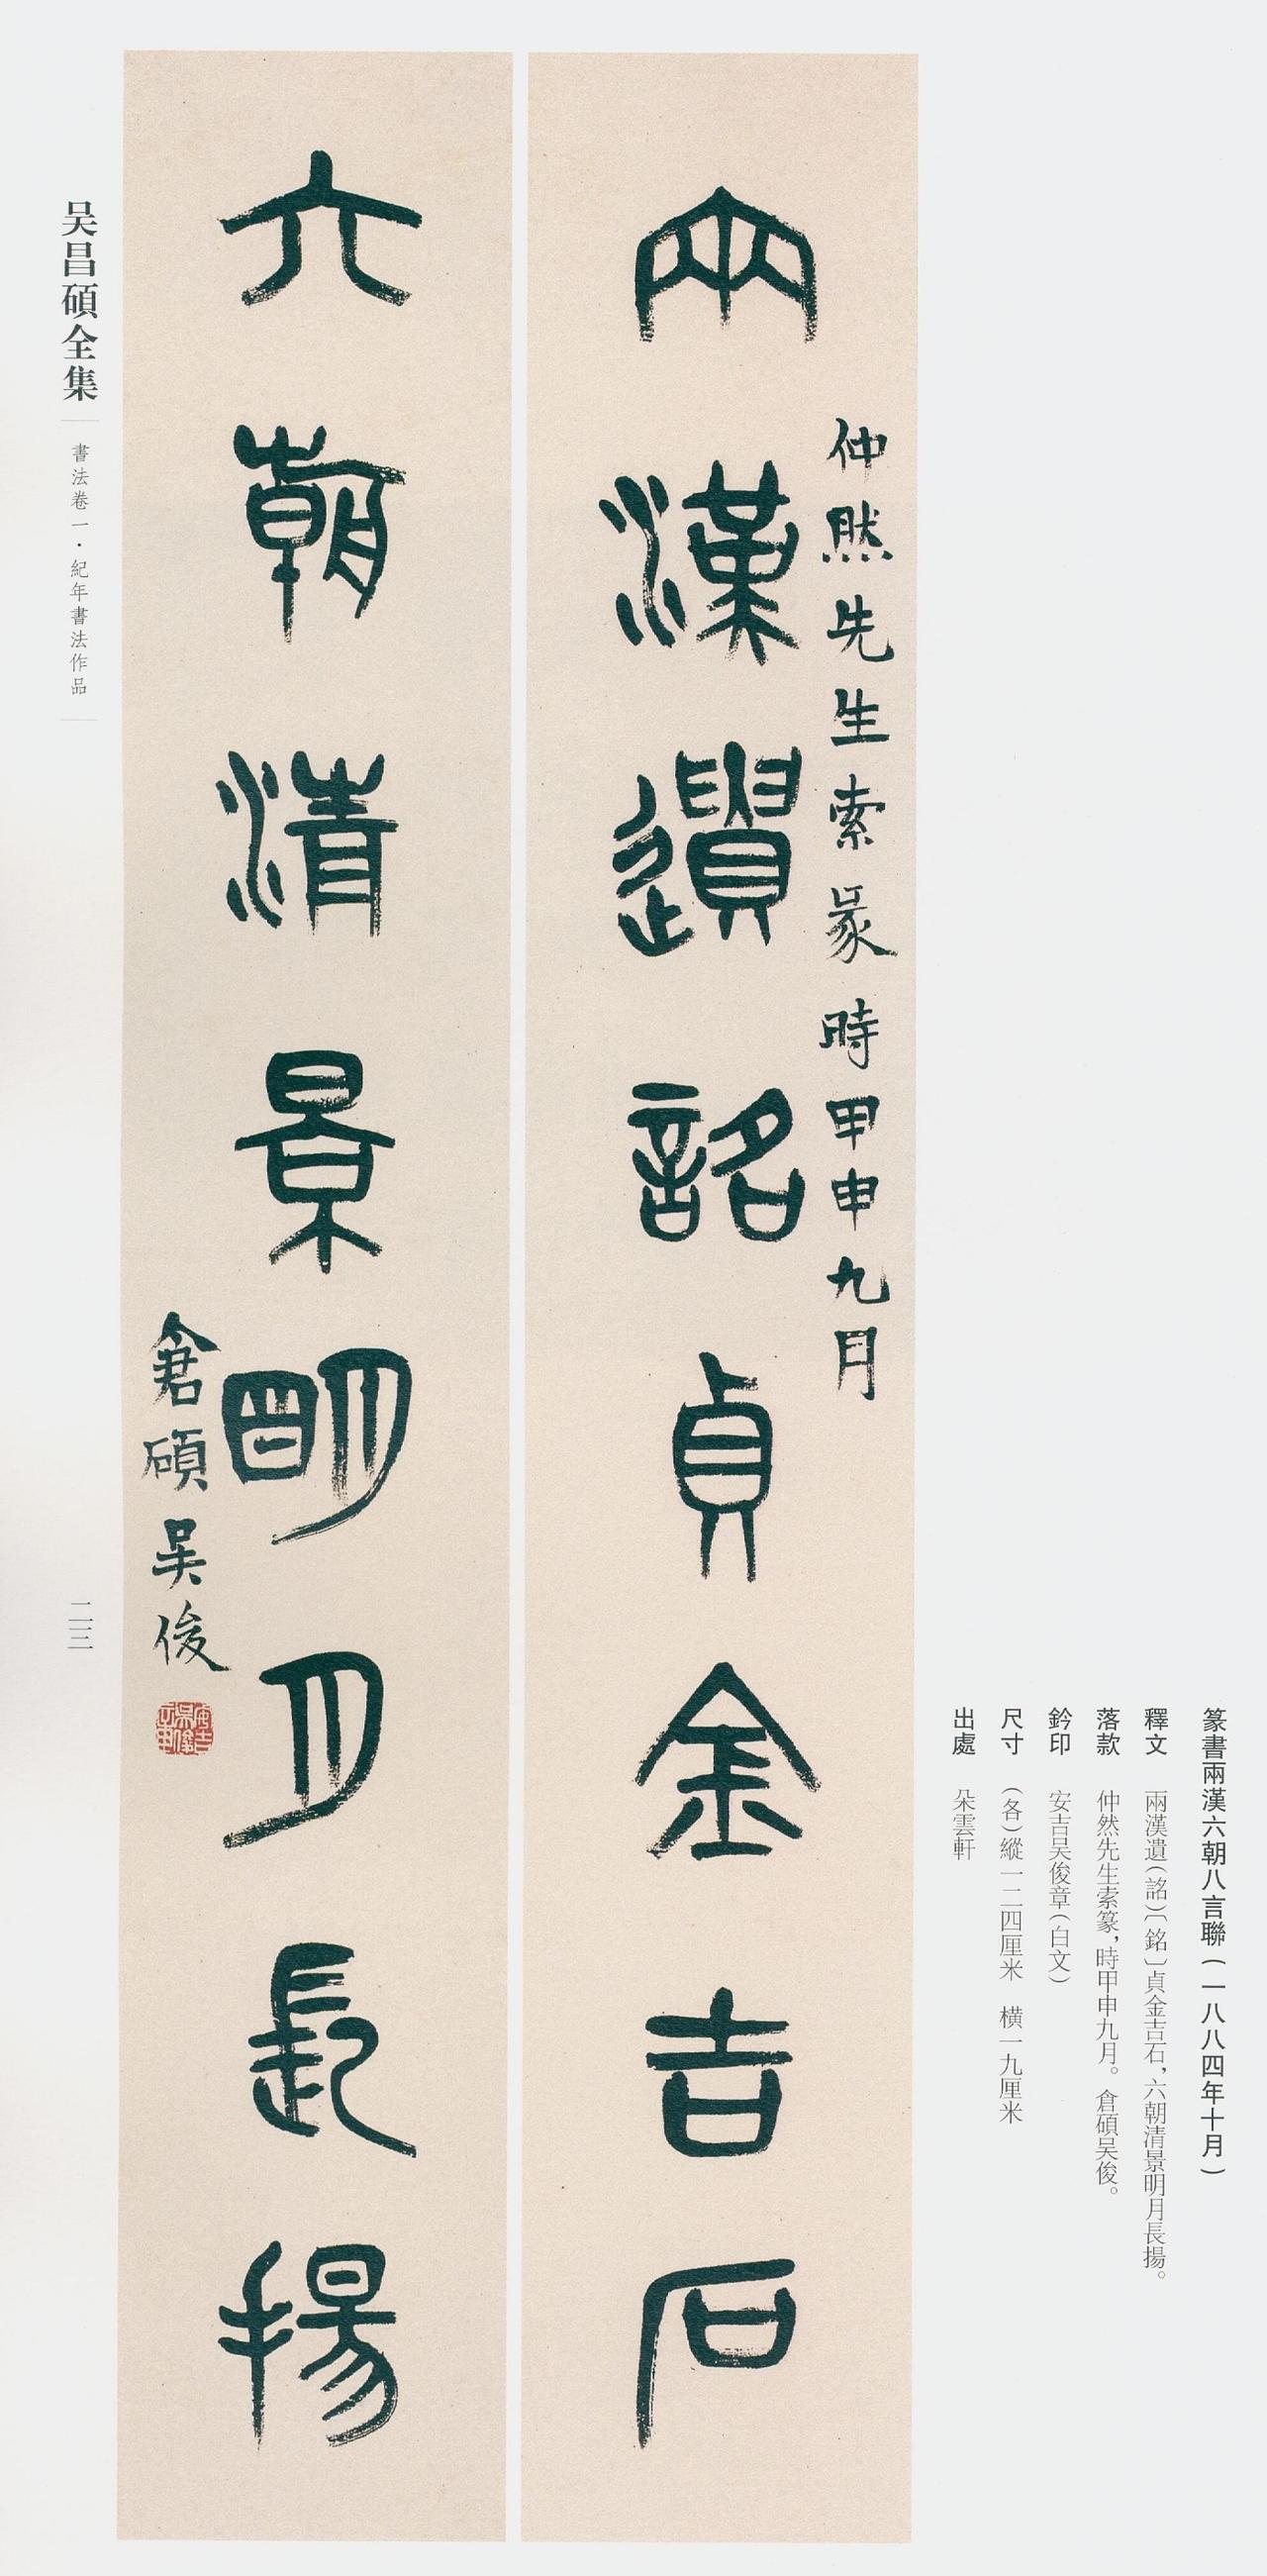 篆書兩漢六朝八言聯(一八八四年十月)
釋文 兩漢遺(詺)〔銘〕貞金吉石,六朝清景明月長揚。
落款 仲然先生索篆,時甲申九月。倉碩吴俊。
鈐印 安吉吴俊章(白文)
尺寸 (各)縱一二四厘米 橫一九厘米
出處 朵雲軒
仲然先生索篆時甲申九月
兩漢遺詺貞金吉石
六朝清景明月長揚
倉碩吴俊
安吉吴俊章
吴昌碩全集
書法卷一·紀年書法作品
二三